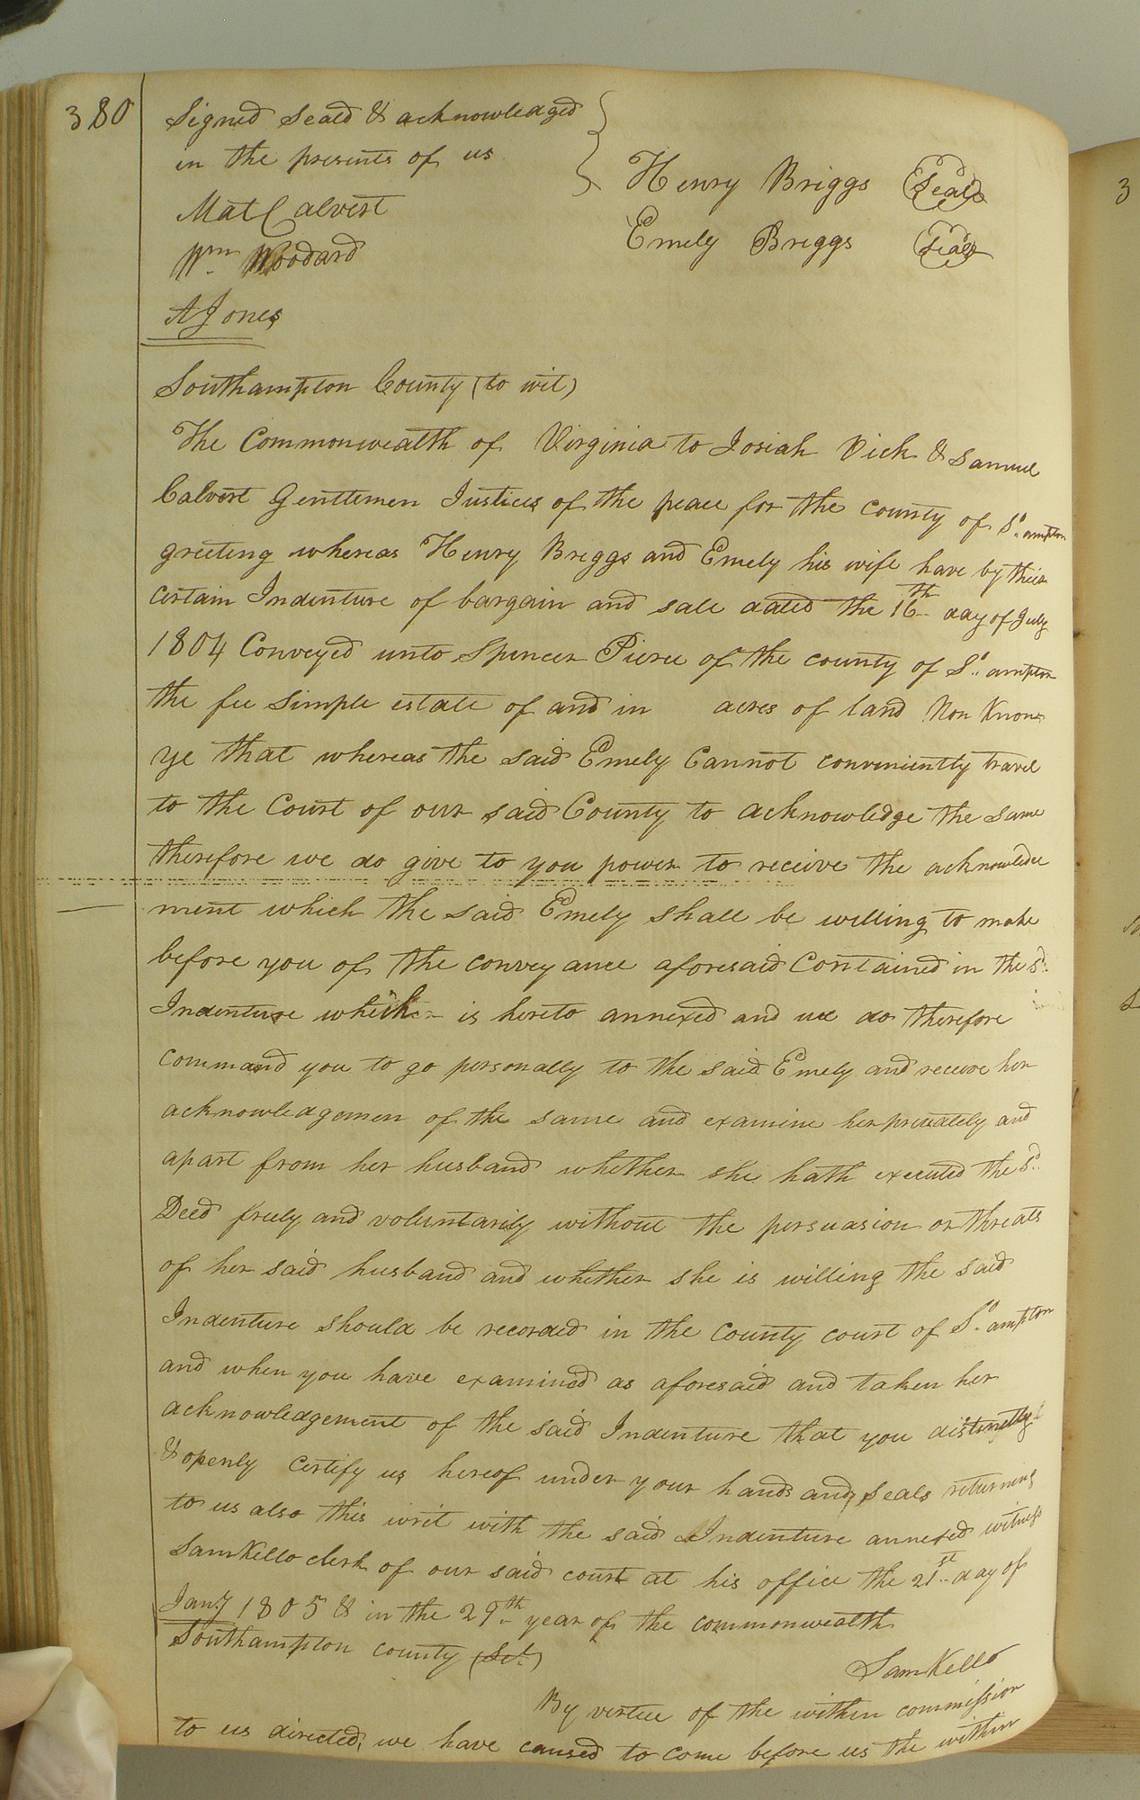 380
Signed Seald & acknowledged
in the presents of us
Henry Briggs (Seal)
Mat Calvert
Emely Briggs (Seal)
Wm Woodard
A Jones
Southampton County (to wit)
The Commonwealth of Virginia to Josiah Vick & Samuel
Calvert Gentlemen Justices of the peace for the County of So.ampton
greeting whereas Henry Briggs and Emely his wife have by their
certain Indenture of bargain and sale dated the 16th day of July
1804 Conveyed unto Spencer Pierce of the county of So.ampton
the fee simple estate of and in acres of land Now Know
ye that whereas the said Emely Cannot conveniently travel
to the Court of our said County to acknowledge the same
therefore we do give to you power to receive the acknowledge
ment which the said Emely shall be willing to make
before you of the conveyance aforesaid Contained in the sd.
Indenture which is hereto annexed and we do therefore
command you to go personally to the said Emely and receive her
acknowledgemen of the same and examine her privately and
apart from her husband whether she hath executed the sd.
Deed freely and voluntarily without the persuasion or threats
of her said husband and whether she is willing the said
Indenture should be recorded in the County court of So.ampton
and when you have examined as aforesaid and taken her
acknowledgement of the said Indenture that you distinctly
& openly certify us hereof under your hands and seals returning
to us also this writ with the said Indenture annexed witness
Sam Kello clerk of our said court at his office the 21st day of
Jany 1805 & in the 29th year of the commonwealth
Southampton county (Sct.)
Sam Kello
By virtue of the within commission
to us directed, we have caused to come before us the within